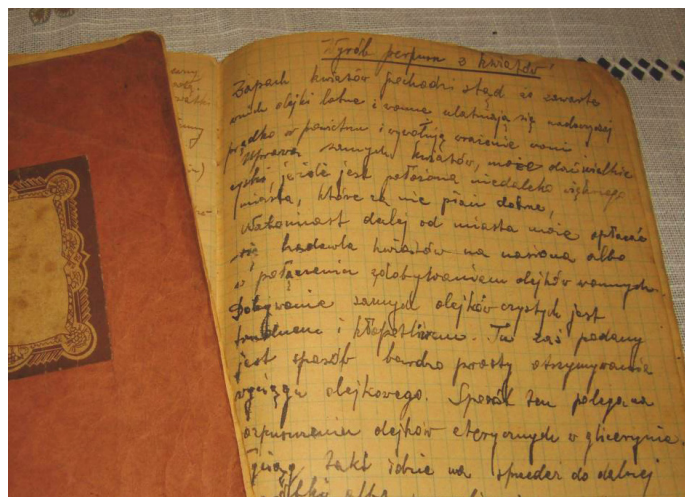 Wyrób perfum z kwiatów
Zapach kwiatów pochodzi stąd że zawarte
w nich olejki lotne i wonne ulatniają się nadzwyczaj
prędko w powietrzu i wywołują wrażenie woni
Uprawa samych kwiatów, może dać wielkie
zyski jeżeli jest położona niedaleko większego
miasta, które za nie płaci dobrze,
Natomiast dalej od miasta może opłacać
się hodowla kwiatów na nasiona albo
w połączeniu zdobywaniem olejków wonnych.
Dobywanie samych olejków czystych jest
trudnem i kłopotliwem. Tu zaś podany
jest sposób bardzo prosty otrzymywania
wyciągu olejkowego. Sposób ten polega na
rozpuszczeniu olejków eterycznych w glicerynie.
Wyciąg taki idzie na sprzedaż do dalszej
albo